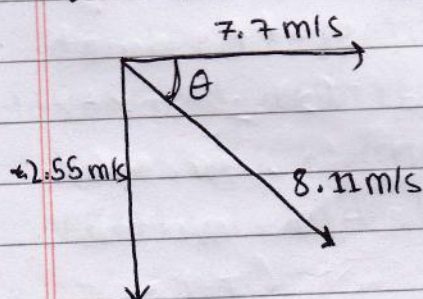 7.7 m/s
θ
2.55 m/s
8.11 m/s